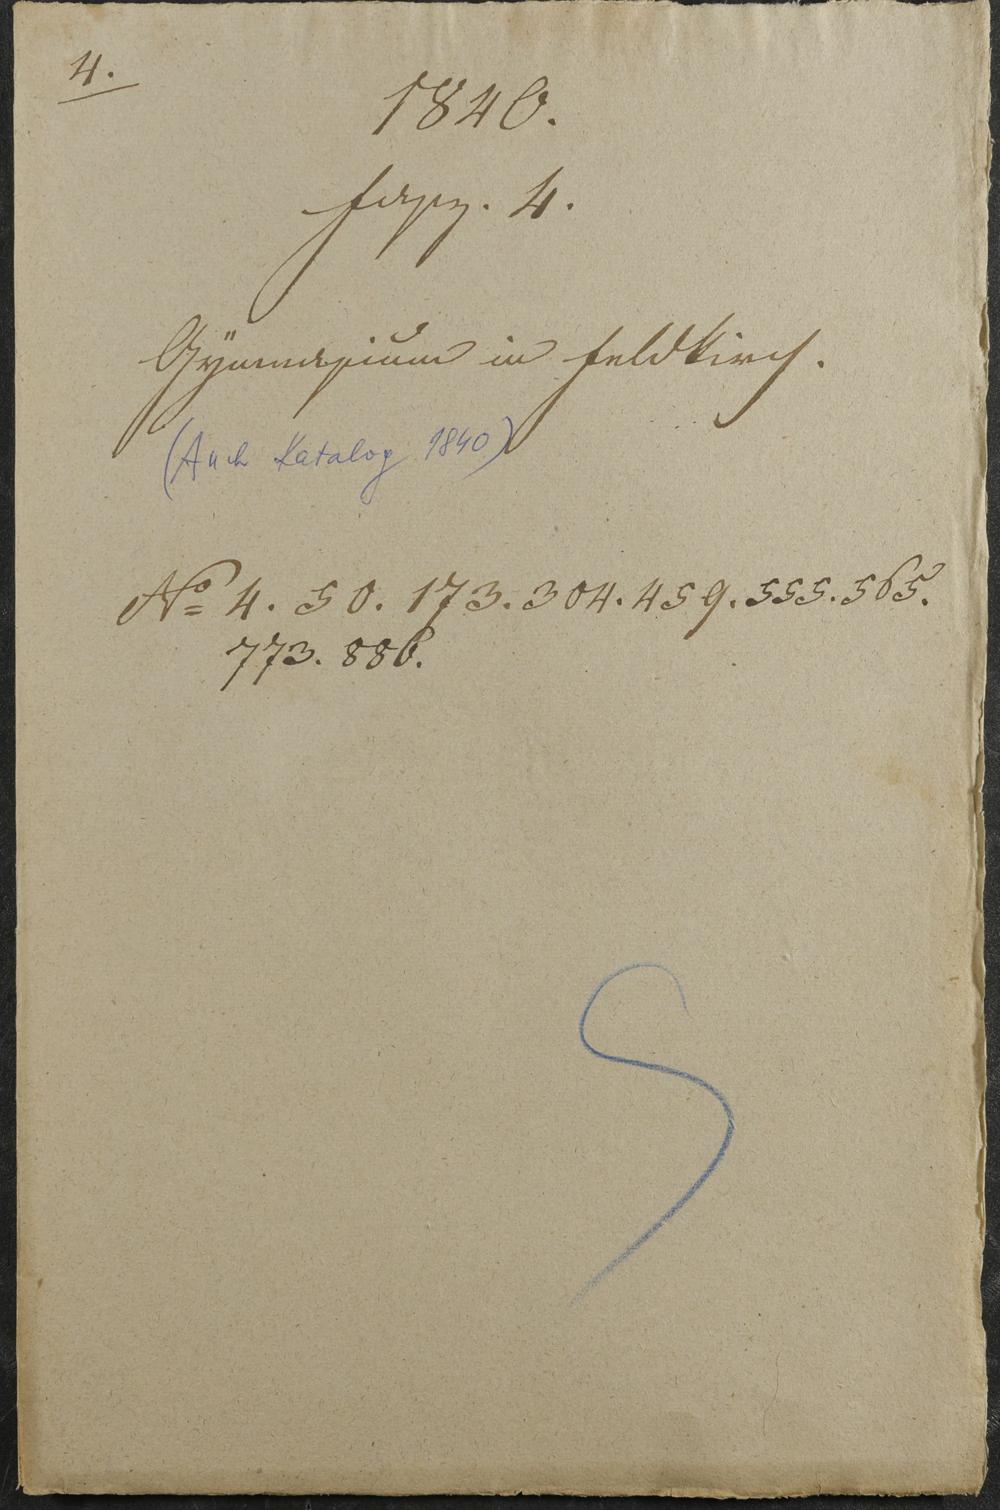 4.
1840.
Fasz. 4.
Gÿmnasium in Feldkirch.
(Auch Katalog 1840)
No 4. 50. 173. 304. 459. 555. 565.
773. 886.
S